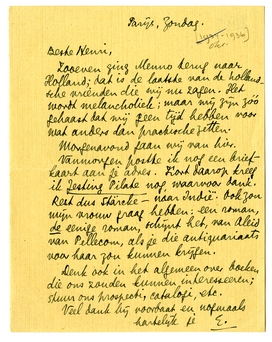 Parijs, Zondag.
[1937-1936]
Beste Henri,
Zooeven ging Menno terug naar
Holland; dat is de laatste van de holland-
sche vrienden die wij nu zagen. Het
wordt melancholiek; maar wij zijn zóó
gehaast dat wij geen tijd hebben voor
wat anders dan practische zetten.
Morgenavond gaan wij van hier.
Vanmorgen postte ik nog een brief-
kaart aan je adres. Kort daarop kreeg
ik Jesting Pilate nog, waarvoor dank.
Rest dus Stärcke — naar Indië. Ook zou
mijn vrouw graag hebben: een roman,
de eenige roman, schijnt het, van Aleid
van Pellecom, als je die antiquariaats
voor haar zou kunnen krijgen.
Denk ook in het algemeen over boeken
die ons zouden kunnen interesseeren;
stuur ons prospecti, catalogi, etc.
Veel dank bij voorbaat en nogmaals
hartelijk je E.